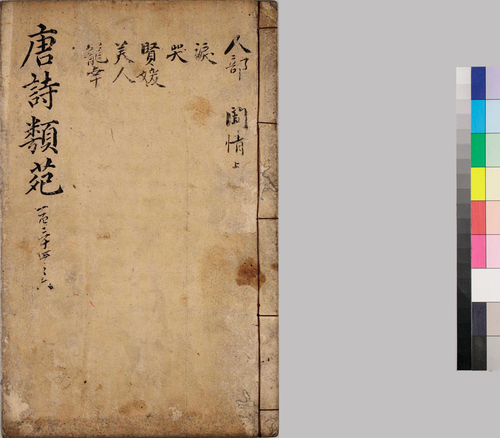 人部　閨情上
淚
哭
賢媛
美人
寵幸
唐詩類苑
一百二十四之六